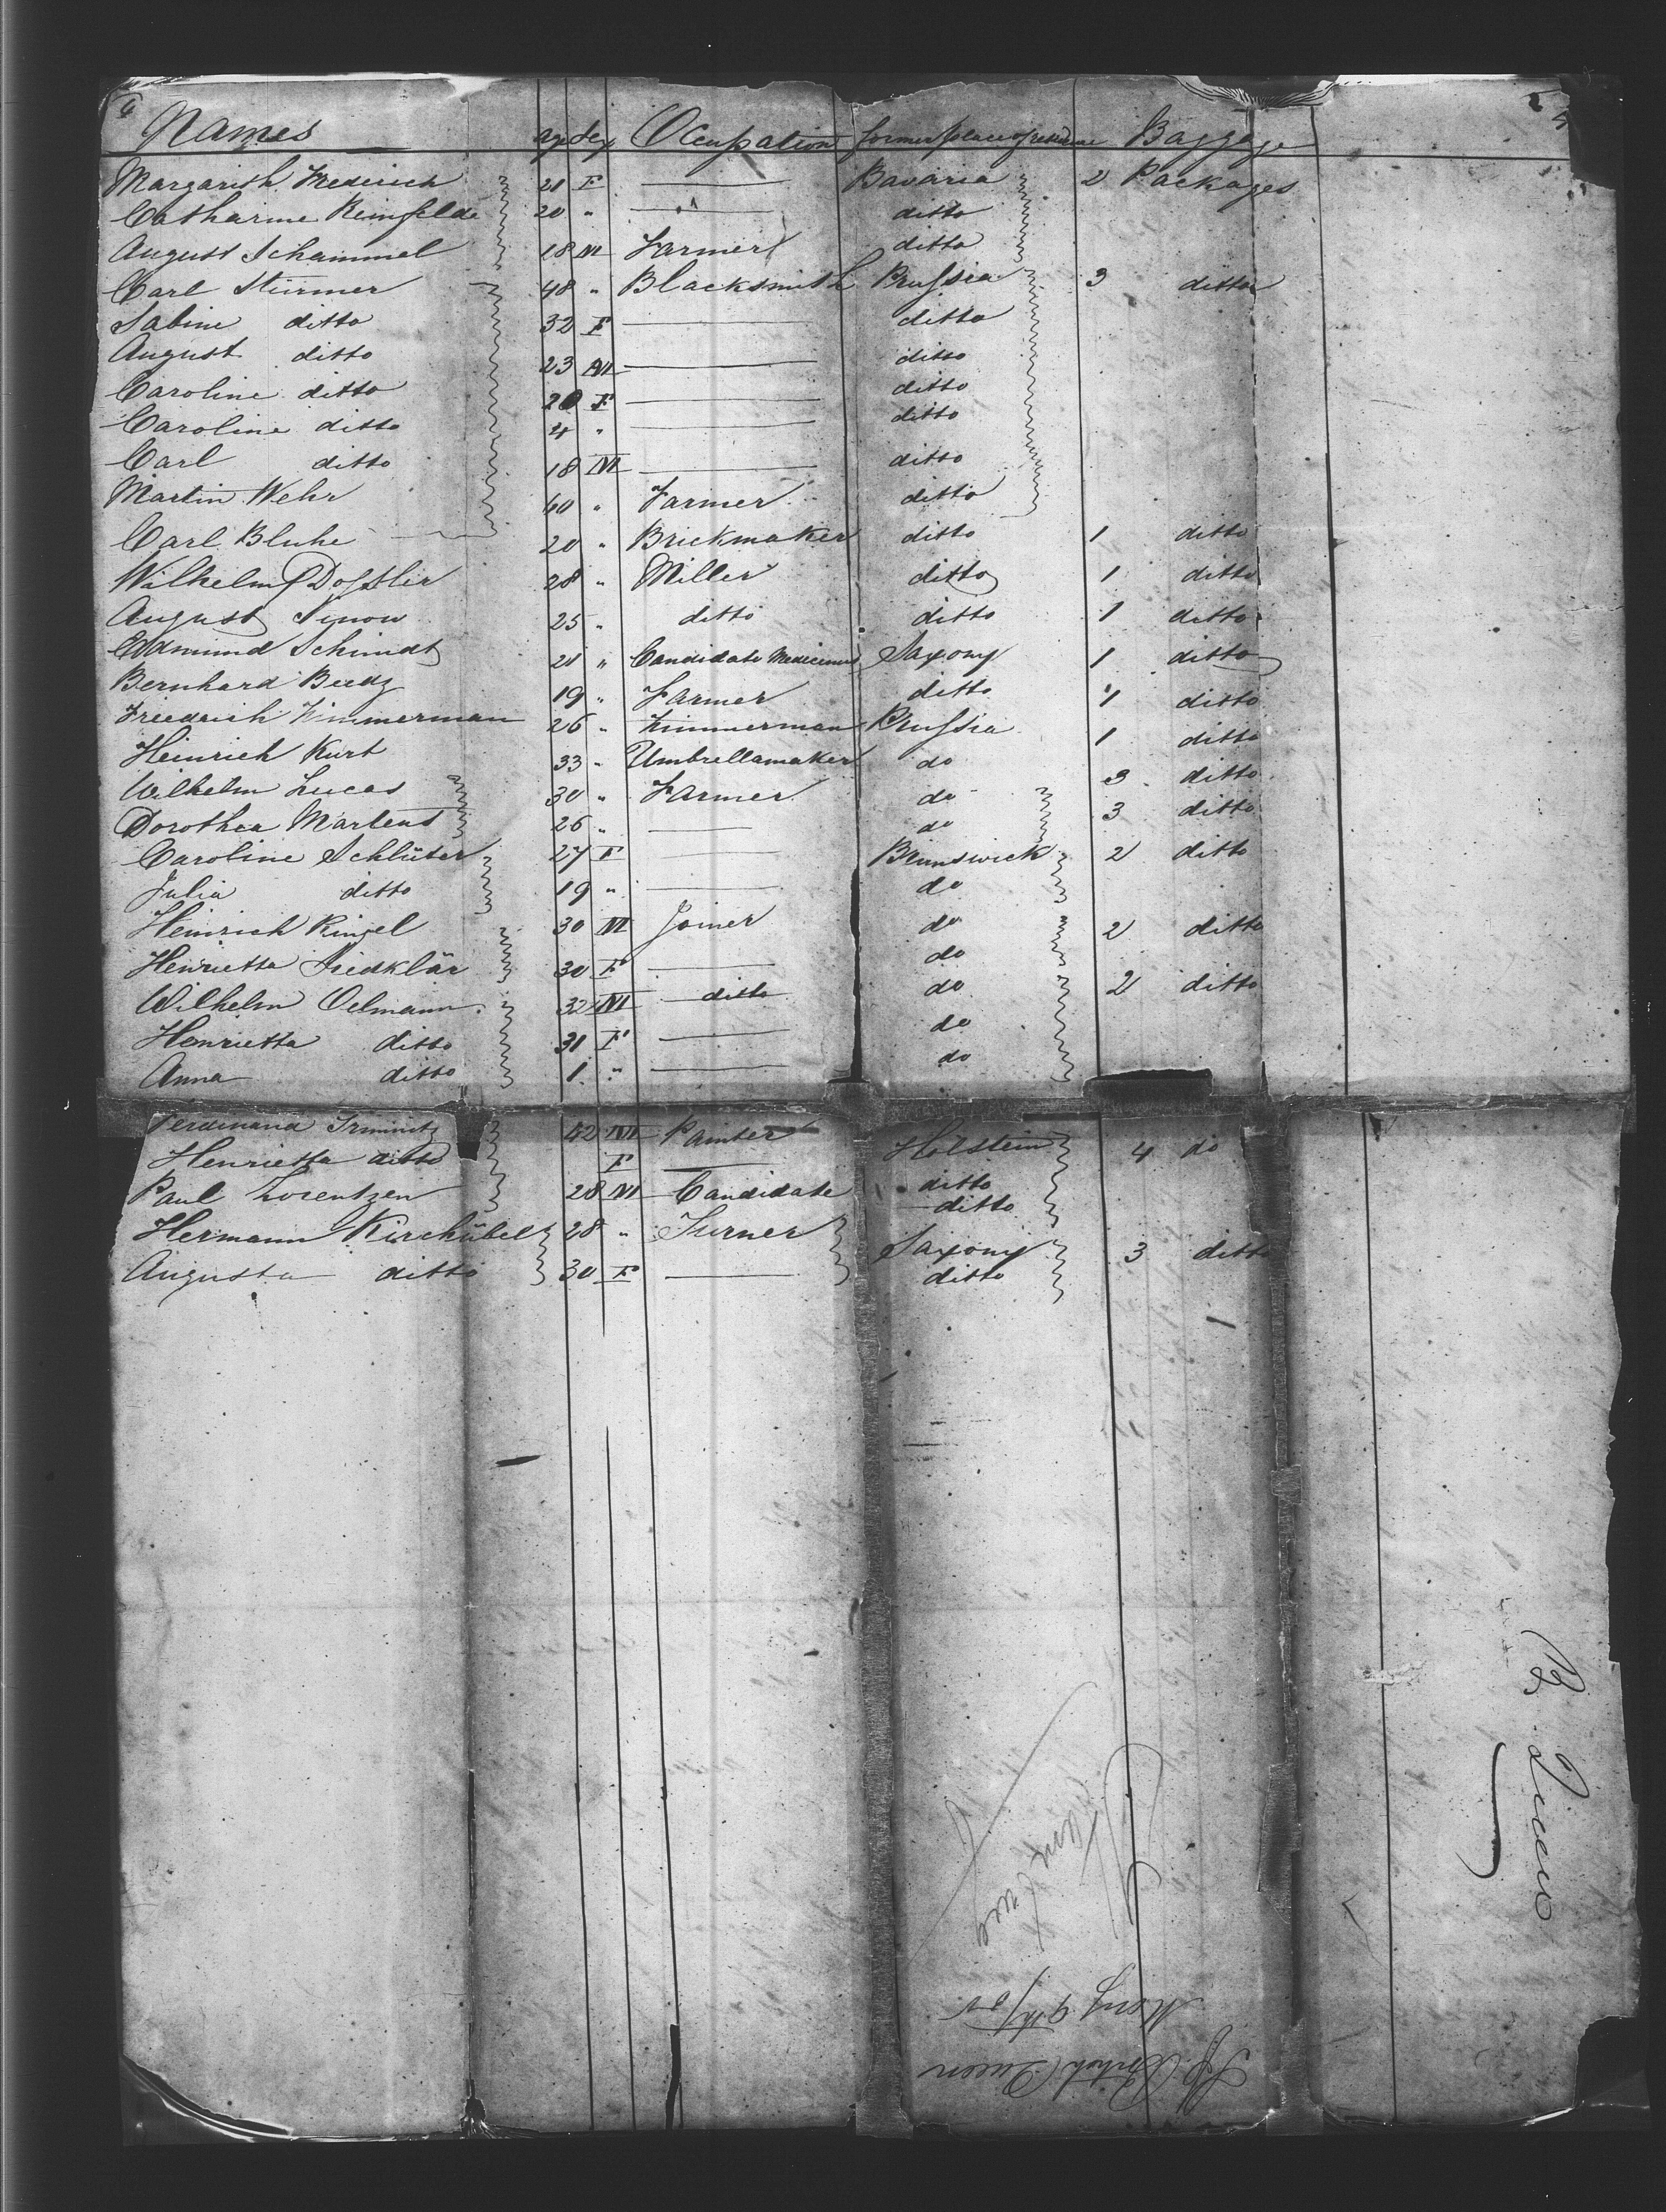 Names age Sex Ocupation former place of residence Baggage
Margarith Frederich 21 F — Bavaria 2 Packages
Catharine Reinfelde 20 " — ditto
August Schammel 18 M Farmer ditto
Carl Stürmer 48 " Blacksmith Prussia 3 ditto
Sabine ditto 32 F — ditto
August ditto 23 M — ditto
Caroline ditto 20 F — ditto
Caroline ditto 4 " — ditto
Carl ditto 18 M — ditto
Martin Wehr 40 " Farmer ditto
Carl Bluhe 20 " Brickmaker ditto 1 ditto
Wilhelm Dosstlir 28 " Miller ditto 1 ditto
August Simon 25 " ditto ditto 1 ditto
Edmund Schimdt 21 " Candidate Saxony 1 ditto
Bernhard 19 " Farmer ditto 1 ditto
Friedrich Zimmerman 26 " Zimmerman Prussia 1 ditto
Heinrich Kurt 33 " Umbrellamaker do 3 ditto
Wilhelm Lucas 30 " Farmer do 3 ditto
Dorothea Martens 26 " — do
Caroline Schlüter 27 F — Brunswick 2 ditto
Julia ditto 19 " — do
Heinrich Ringel 30 M Joiner do 2 ditto
Henrietta 30 F — do
Wilhelm Oelmann 32 M ditto do 2 ditto
Henrietta ditto 31 F — do
Anna ditto 1 " — do
Ferdinand Irminitz 42 M Painter Holstein 4 do
Henrietta ditto F — ditto
Paul Lorentzen 28 M Candidate ditto
Hermann Kirchübel 28 " Turner Saxony 3 ditto
Augusta ditto 30 F — ditto
B. Queen
May 9th
Sp. British Queen